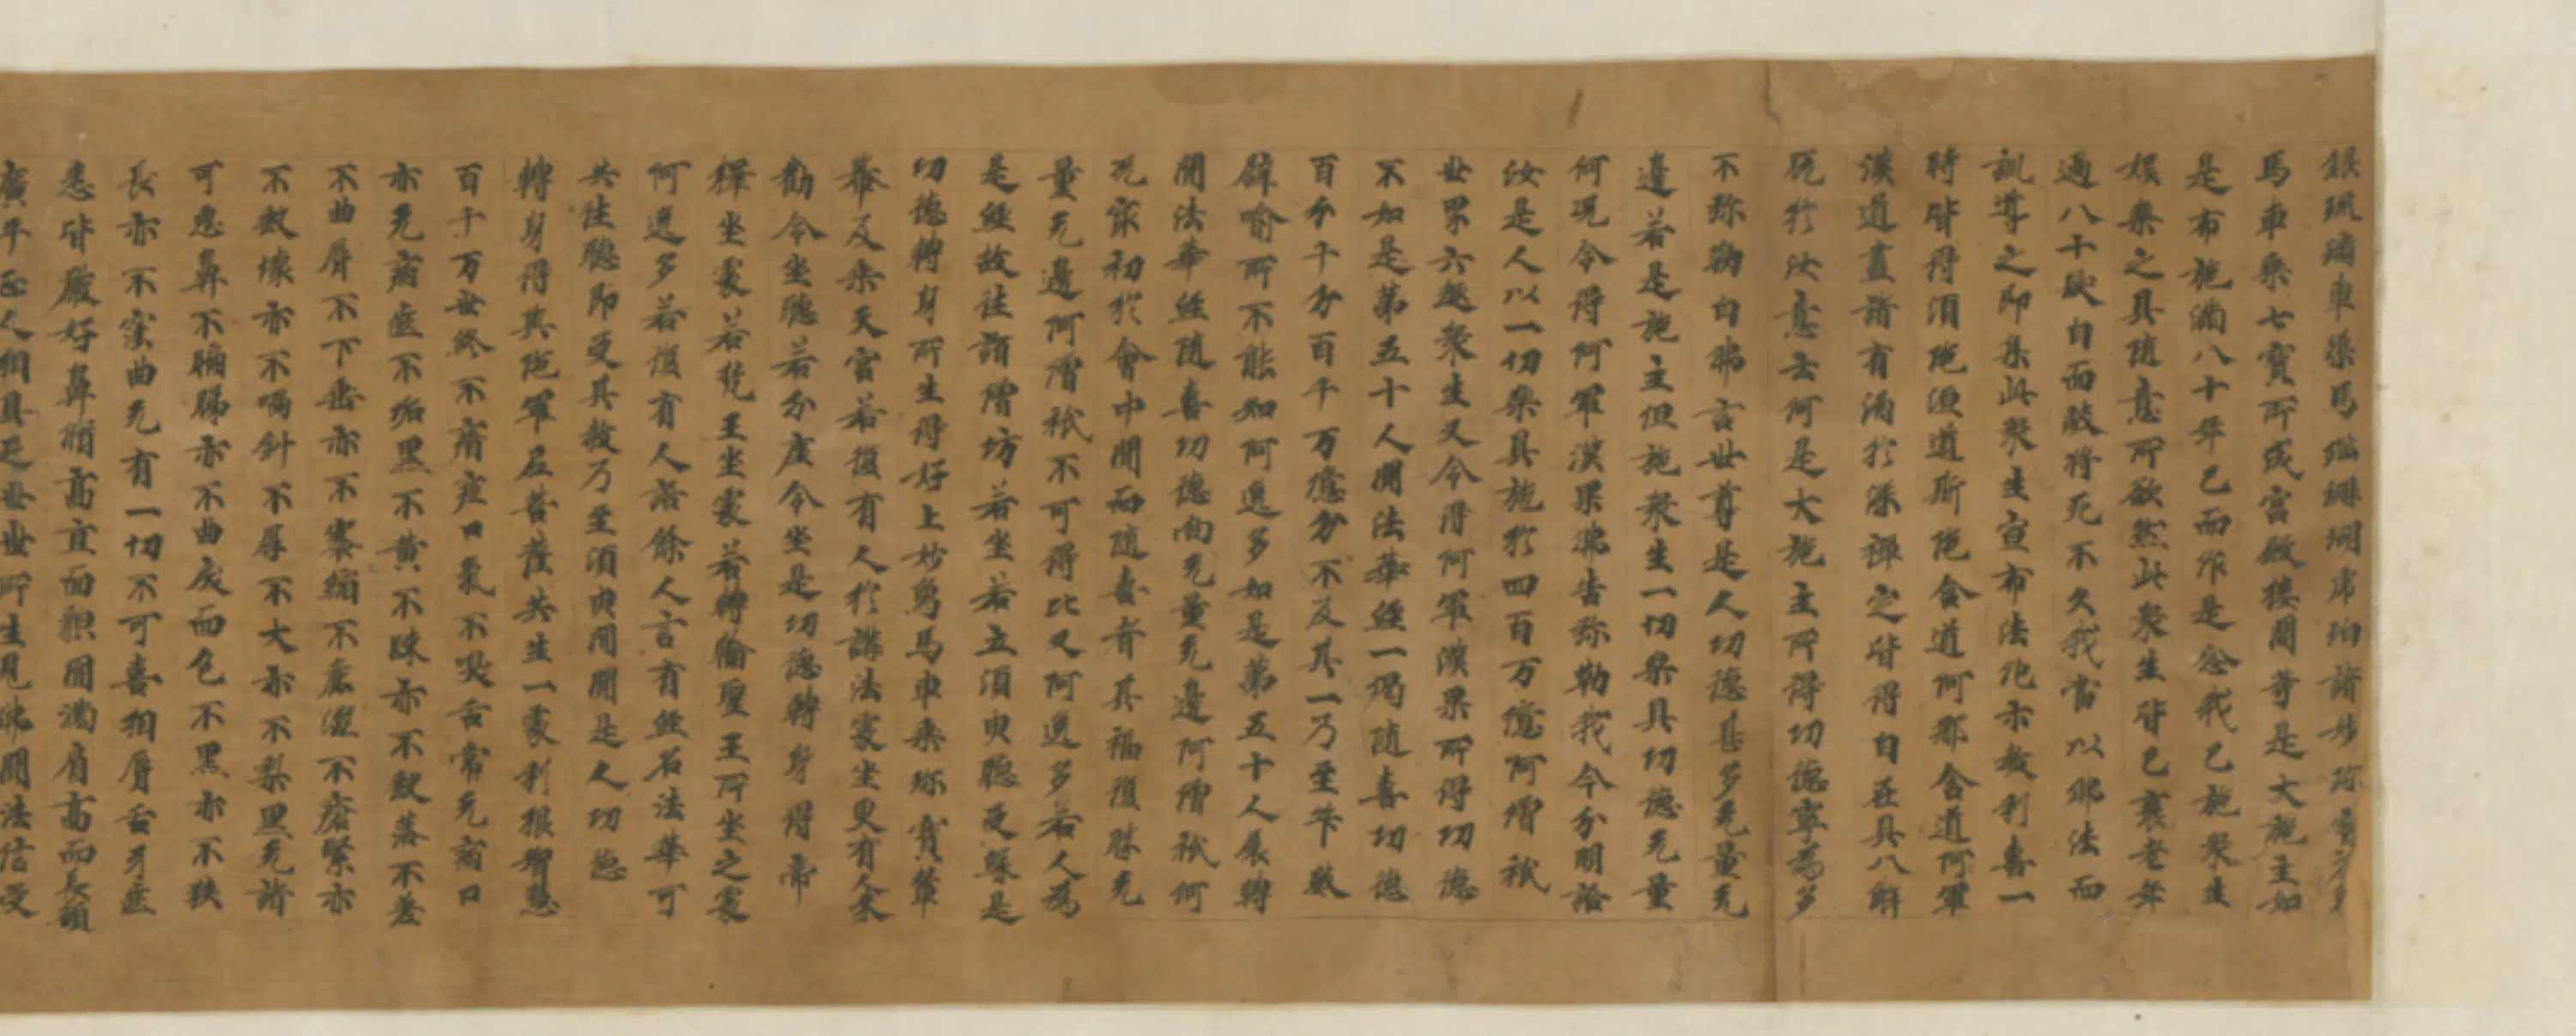 銀琉璃車璖馬瑙珊瑚虎珀諸妙珎
馬車乘七寶所成宮殿樓閣等是大施主如
是布施滿八十年已而作是念我已施眾生
娛樂之具隨意所欲然此眾生皆已衰老年
過八十髮白而皺將死不久我當以佛法而
訓導之即集此眾生宣布法化示教利喜一
時皆得須陀洹道斯陀含道阿那含道阿羅
漢道盡諸有漏於深禪定皆得自在具八解
脫於汝意云何是大施主所得功德寧為多
不弥勒白佛言世尊是人功德甚多无量无
邊若是施主但施眾生一切樂具功德无量
何況令得阿羅漢果佛告弥勒我今分明語
汝是人以一切樂具施於四百万億阿僧祇
世界六趣眾生又令得阿羅漢果所得功德
不如是第五十人聞法華經一偈隨喜功德
百分千分百千万億分不及其一乃至筭數
譬喻所不能知阿逸多如是第五十人展轉
聞法華經隨喜功德尚无量无邊阿僧祇何
況㝡初於會中聞而隨喜者其福復勝无
量无邊阿僧祇不可得比又阿逸多若人為
是經故往詣僧坊若坐若立須臾聽受緣是
功德轉身所生得好上妙象馬車乘珎寶輦
轝及乘天宮若復有人於講法處坐更有人來
勸令坐聽若分座令坐是功德轉身得帝
釋坐處若梵王坐處若轉輪聖王所坐之處
阿逸多若復有人語餘人言有經名法華可
共往聽即受其教乃至須臾間聞是人功德
轉身得與陀羅尼菩薩共生一處利根智慧
百千万世終不瘖瘂口氣不臭舌常无病口
亦无病齒不垢黑不黃不踈亦不缺落不差
不曲脣不下垂亦不褰縮不麁澀不瘡緊亦
不缺壞亦不喎斜不厚不大亦不梨黑无諸
可惡鼻不膈䏲亦不曲戾面色不黑亦不狹
長亦不窊曲无有一切不可喜相脣舌牙齒
悉皆嚴好鼻脩高直面貌圓滿眉高而長額
廣平正人相具足世世所生見佛聞法信受